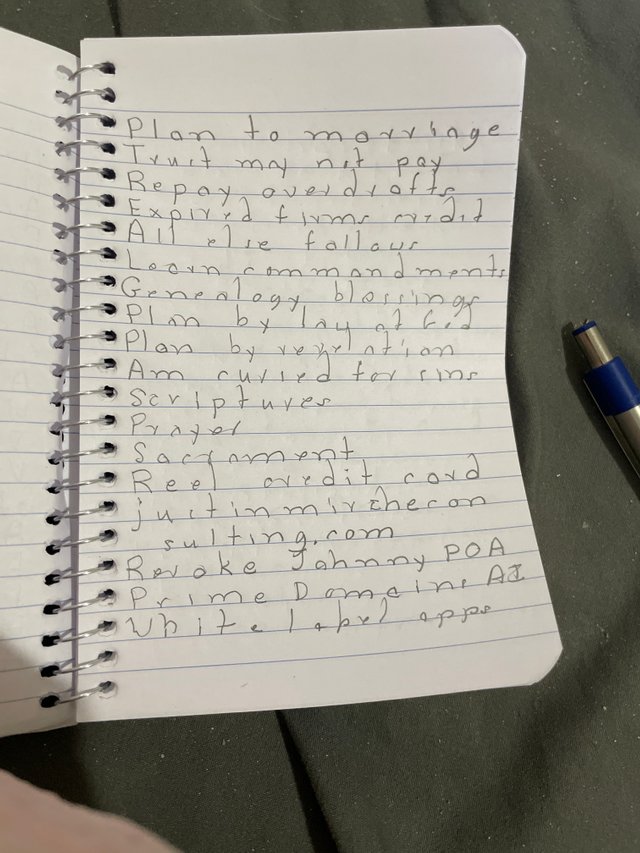 Plan to marriage
Trust may not pay
Repay overdrafts
Expired firms credit
All else follows
Learn commandments
Genealogy blessings
Plan by law of God
Plan by revelation
Am cursed for sins
Scriptures
Prayer
Sacrament
Reel credit card
justinmirchecon
sulting.com
Revoke Johnny POA
Prime Domains AI
White label apps